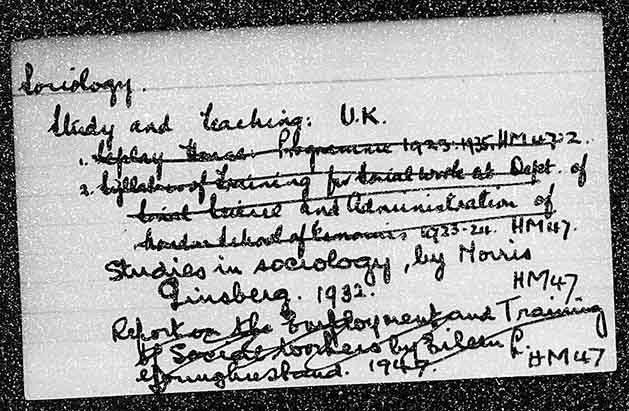 Sociology.
Study and teaching: U.K.
1. Leplay House. Programme 1923-1935. HM47:2.
2. Syllabus of training for social work at Dept. of
Social Science and Administration of
London School of Economics 1923-24. HM47.
Studies in sociology, by Morris
Ginsberg. 1932. HM47
Report on the Employment and Training
of Social Workers by Eileen L.
Younghusband. 1947. HM47